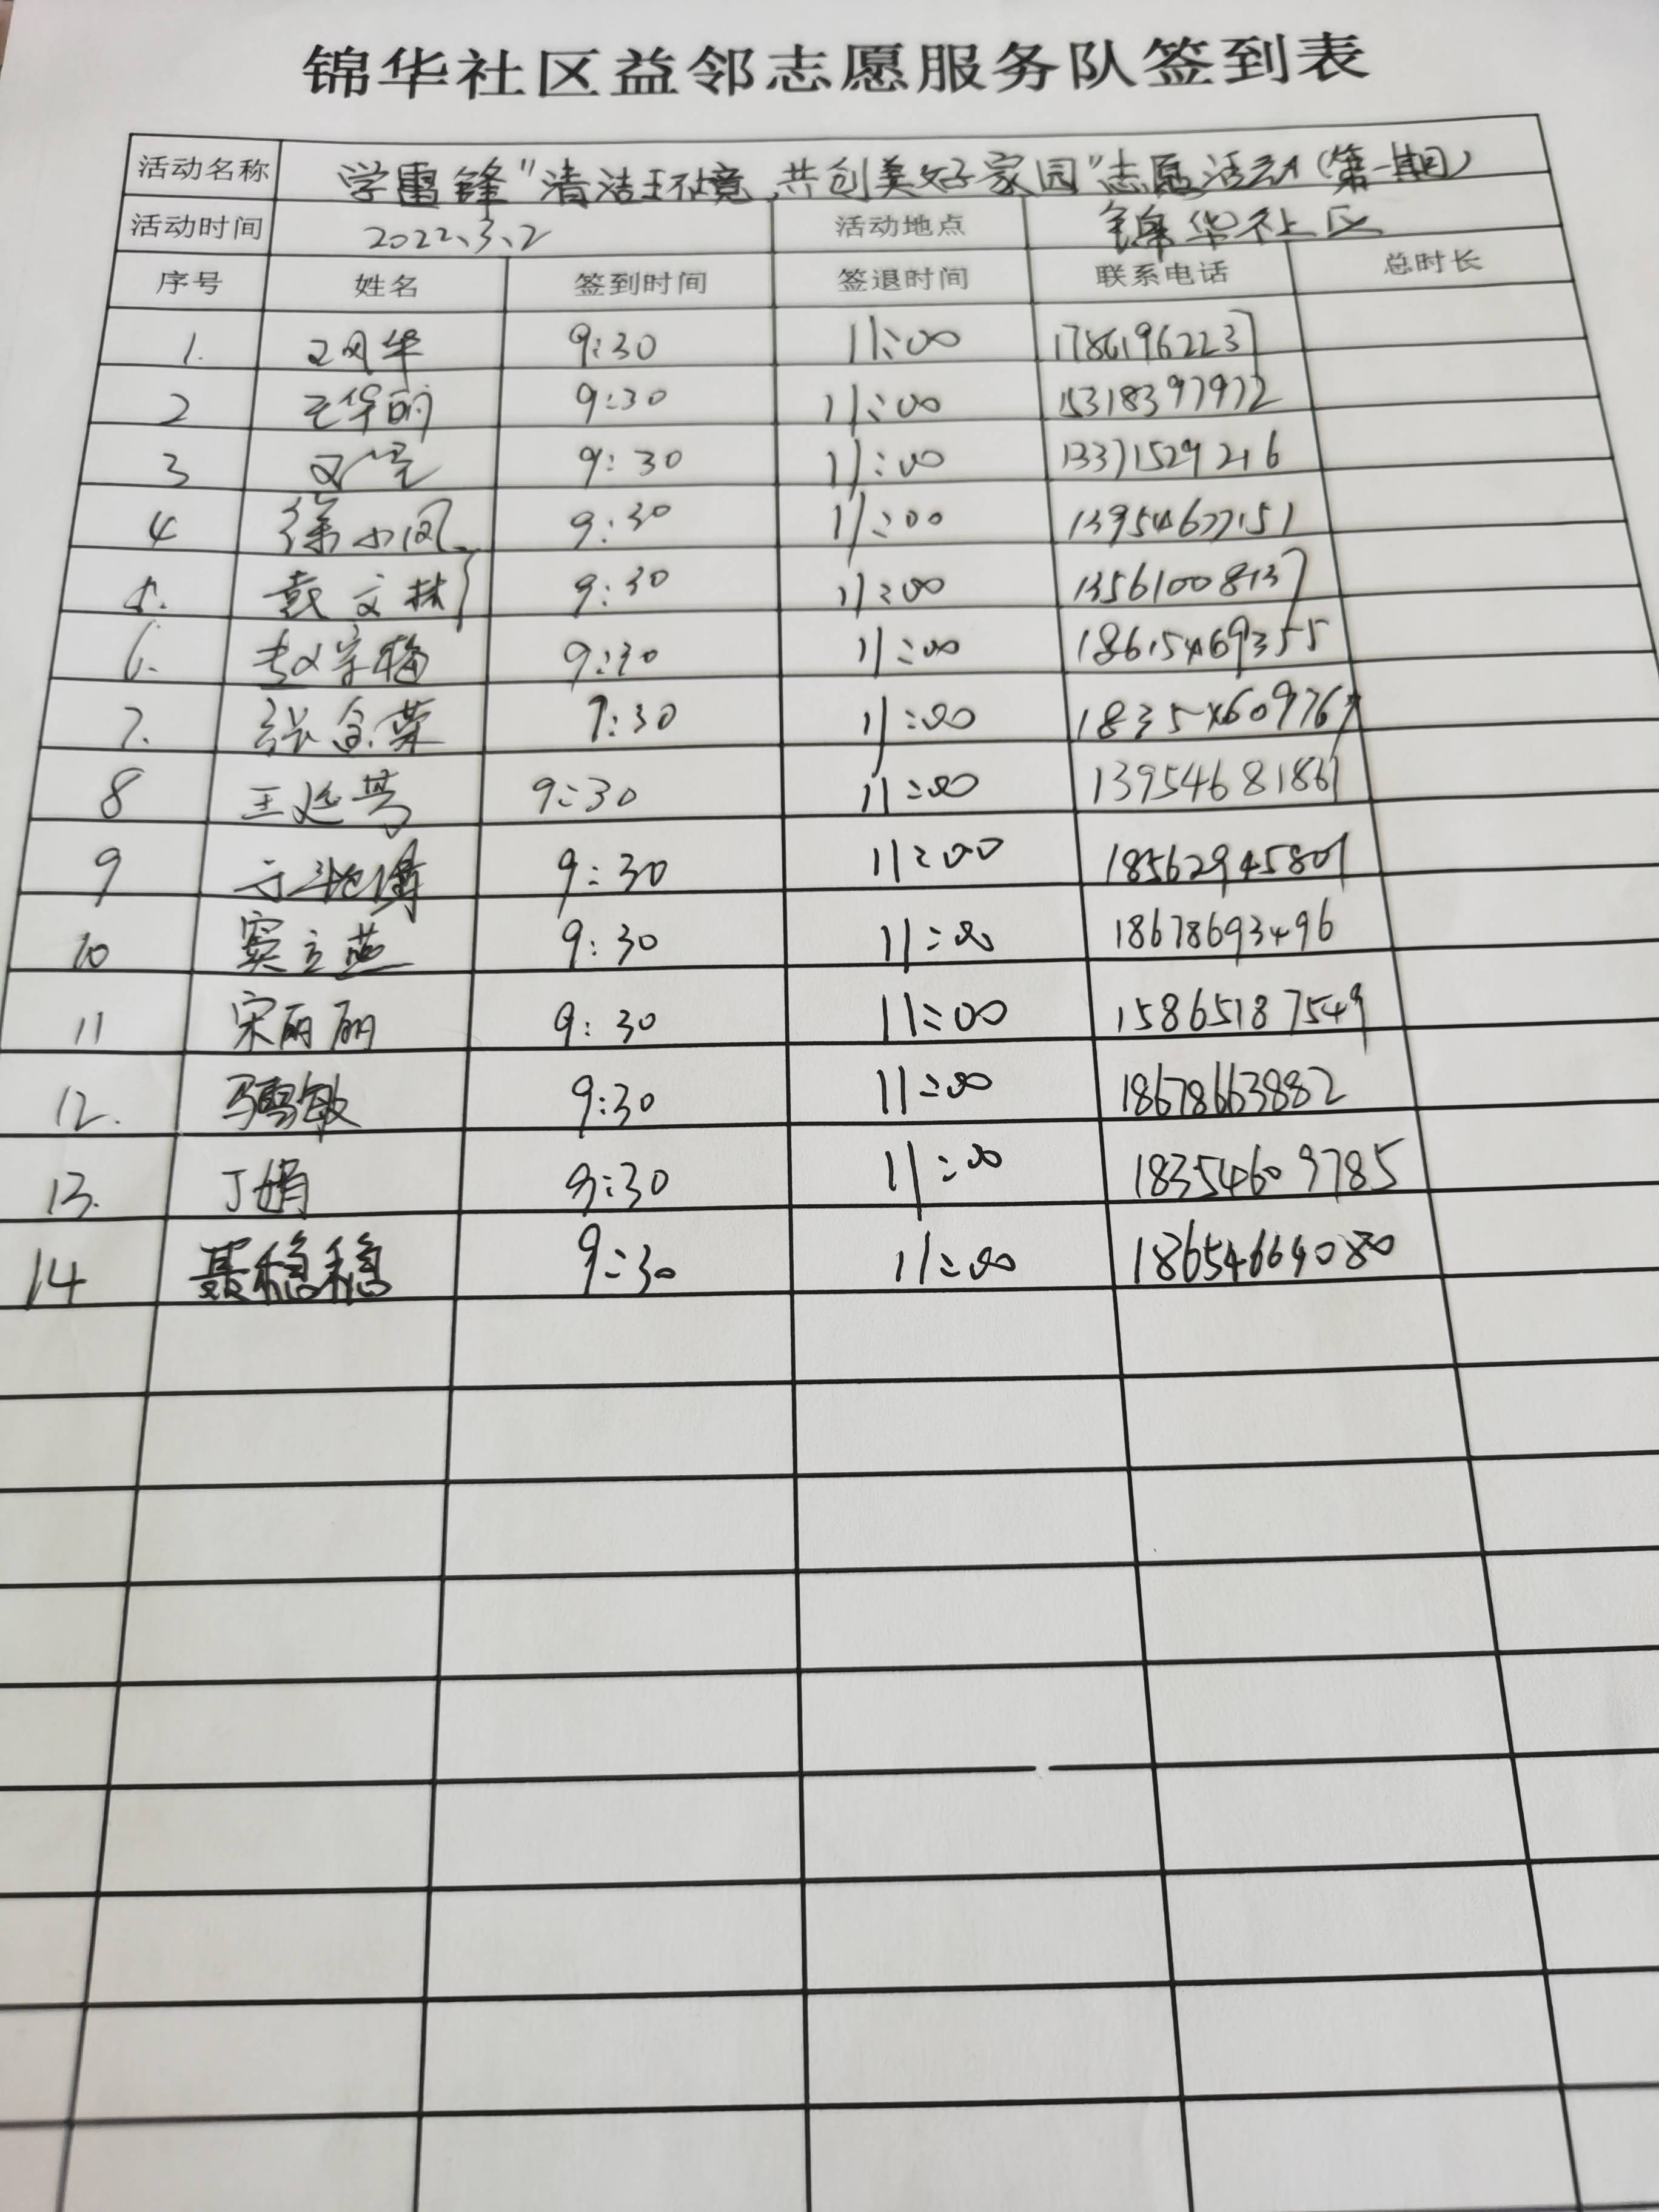 锦华社区益邻志愿服务队签到表
活动名称 学雷锋"清洁环境,共创美好家园"志愿活动(第一期)
活动时间 2022.3.2 活动地点 锦华社区
序号 姓名 签到时间 签退时间 联系电话 总时长
1. 9:30 11:00 17861962237
2 王华丽 9:30 11:00 15318397972
3 9:30 11:00 13371529216
4 徐小凤 9:30 11:00 13954677151
5. 戴文林 9:30 11:00 13561008137
6. 赵 9:30 11:00 18615469355
7. 张金荣 9:30 11:00 18354609767
8 王延芳 9:30 11:00 13954681861
9 9:30 11:00 18562945801
10 窦立燕 9:30 11:00 18678693496
11 宋丽丽 9:30 11:00 15865187549
12. 敏 9:30 11:00 18678663882
13. 丁娟 9:30 11:00 18354609785
14 聂稳稳 9:30 11:00 18654664080